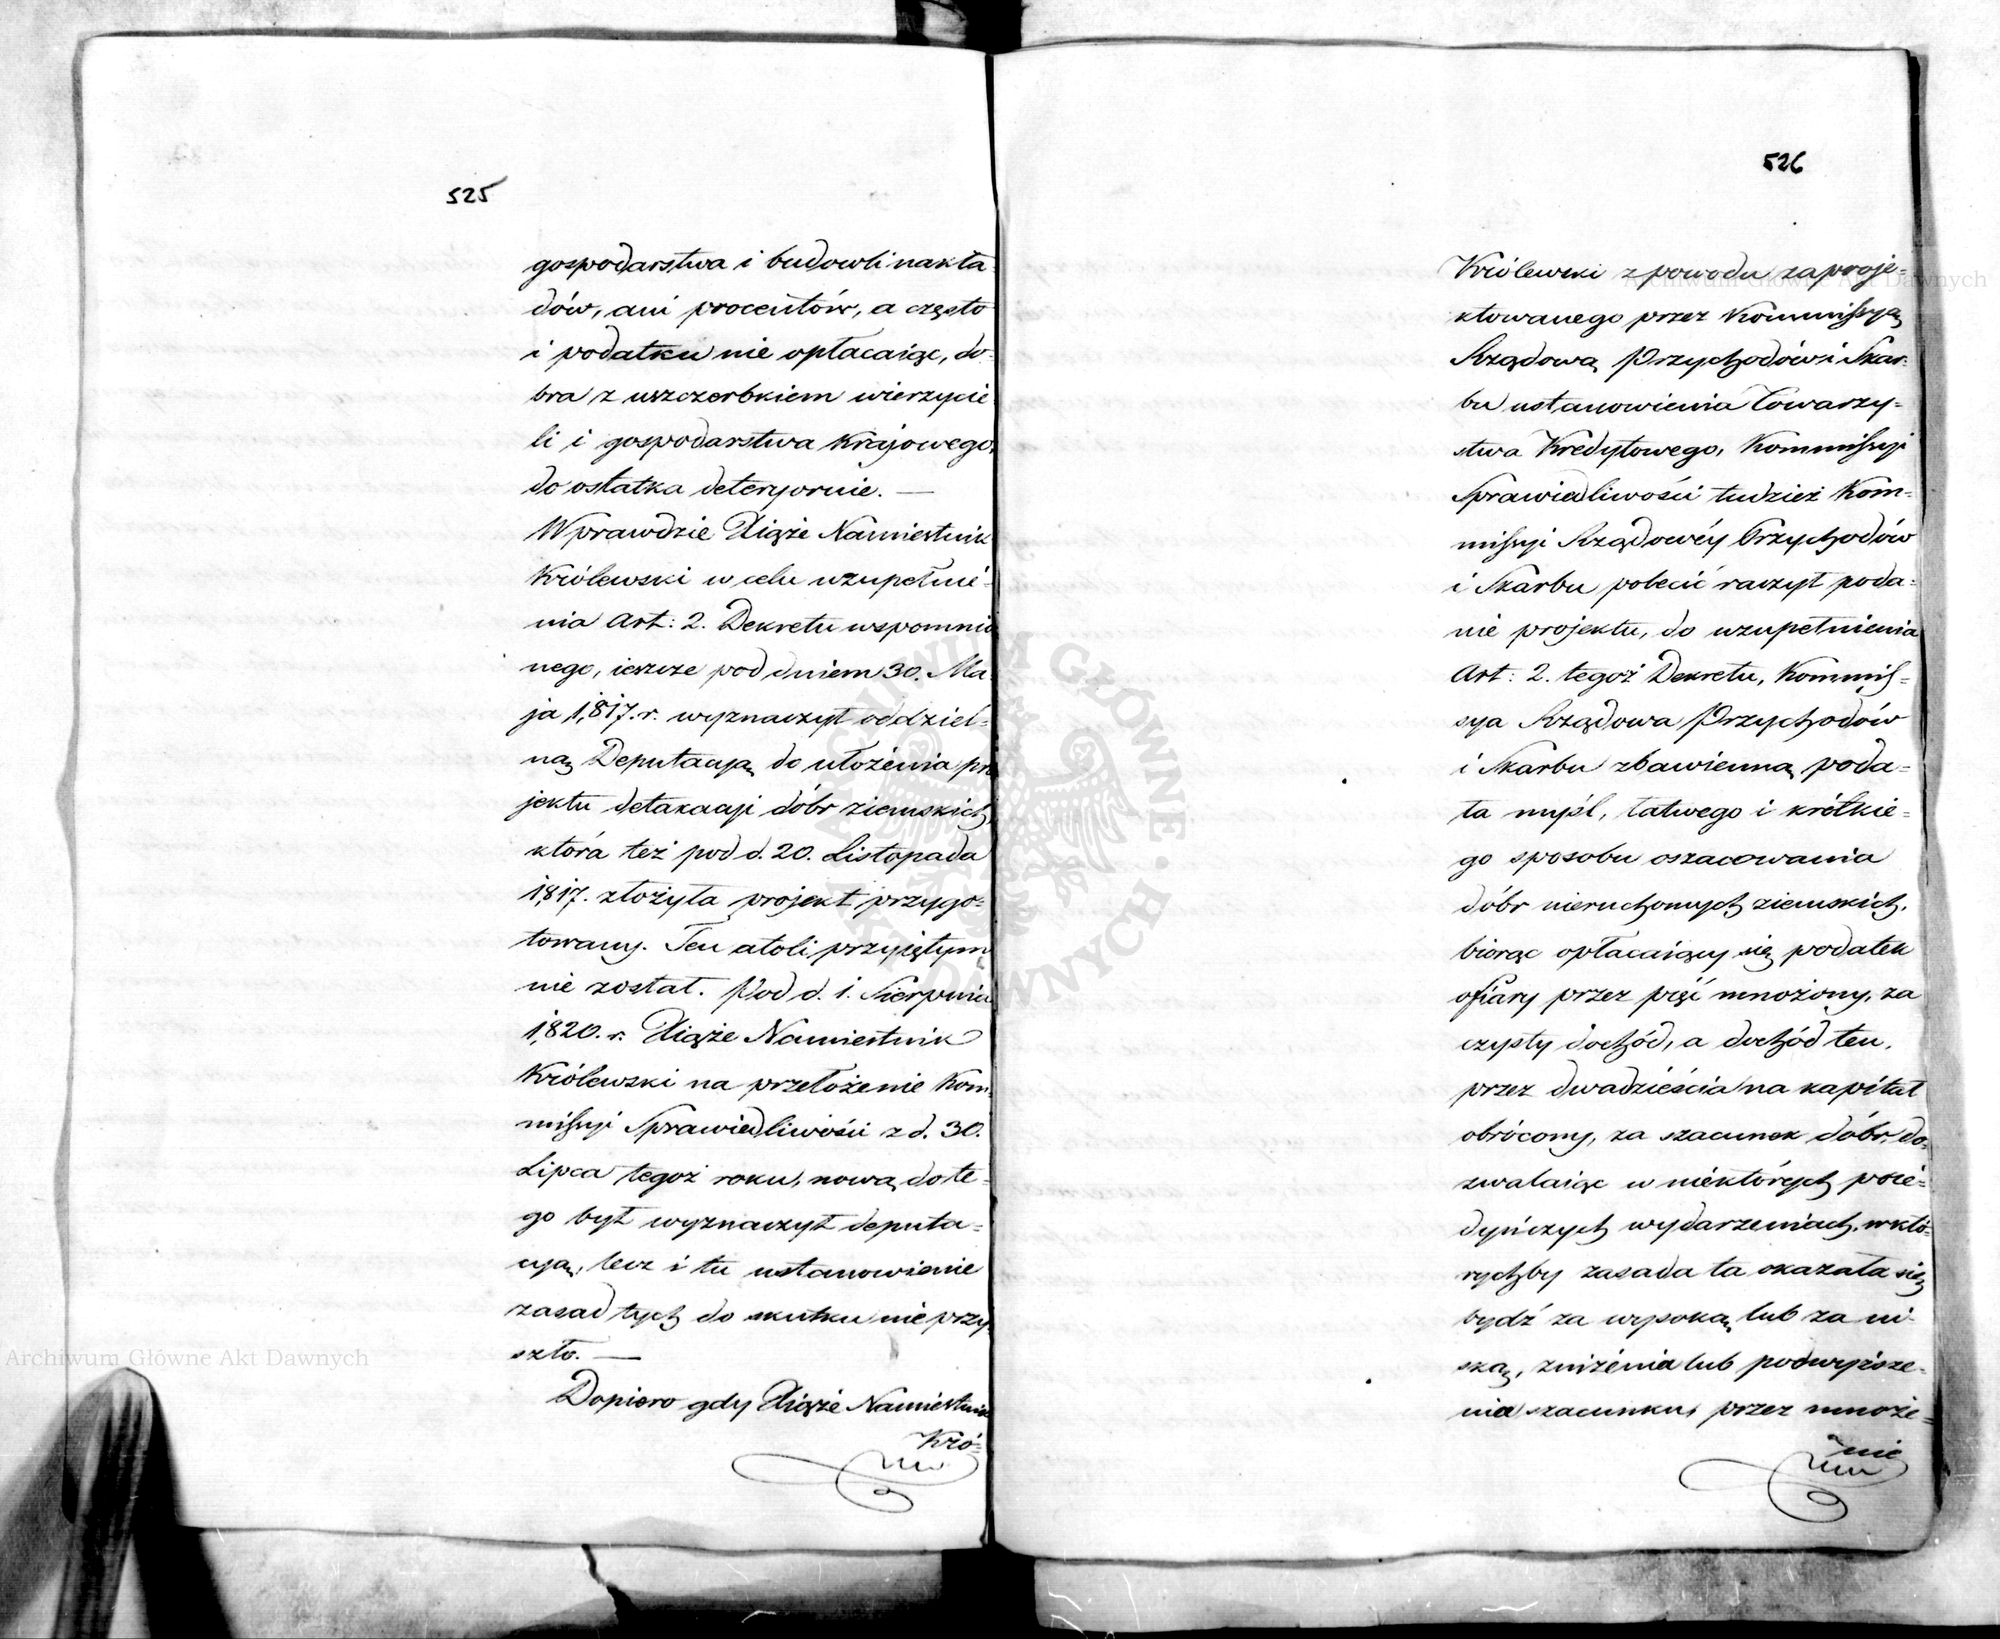 525
gospodarstwa i budowli nakła-
dów, ani procentów, a często
i podatku nie opłacaiąc, do-
bra z uszczerbkiem wierzycie-
li i gospodarstwa Krajowego,
do ostatka deteryoruie. —
Wprawdzie Xiąże Namiestnik
Królewski w celu uzupełnie-
nia Art: 2. Dekretu wspomnio
nego, ieszcze pod dniem 30. Ma-
ja 1,817. r. wyznaczył oddziel-
ną Deputacyą do ułożenia pro
jektu detaxacyi dóbr ziemskich,
która też pod d. 20. Listopada
1,817. złożyła projekt przygo-
towany. Ten atoli przyiętym
nie został. Pod d. 1. Sierpnia
1,820. r. Xiąże Namiestnik
Królewski na przełożenie Kom-
missyi Sprawiedliwości z d. 30.
Lipca tegoż roku, nową do te-
go był wyznaczył deputa-
cyą, lecz i tu ustanowienie
zasad tych do skutku nie przy-
szło. —
Dopiero gdy Xiąże Namiestnik
Kró-
526
Królewski z powodu zaproje-
ktowanego przez Kommissyą
Rządową Przychodów i Skar-
bu ustanowienia Towarzy-
stwa Kredytowego, Kommissyi
Sprawiedliwości tudzież Kom-
missyi Rządowéy Przychodów
i Skarbu polecić raczył poda-
nie projektu, do uzupełnienia
Art: 2. tegoż Dekretu, Kommis-
sya Rządowa Przychodów
i Skarbu zbawienną poda-
ła myśl, łatwego i krótkie-
go sposobu oszacowania
dóbr nieruchomych ziemskich,
biorąc opłacaiący się podatek
ofiary przez pięć mnożony, za
czysty dochód, a dochód ten,
przez dwadzieścia na kapitał
obrócony, za szacunek dóbr, do-
zwalaiąc w niektórych poie-
dyńczych wydarzeniach, w któ-
rychby zasada ta okazała się
bydź za wysoką, lub za ni-
ską, zniżenia lub podwyższe-
nia szacunku, przez mnoże-
nie
Archiwum Główne Akt Dawnych
Archiwum Główne Akt Dawnych
ARCHIWUM GŁÓWNE · AKT DAWNYCH ·